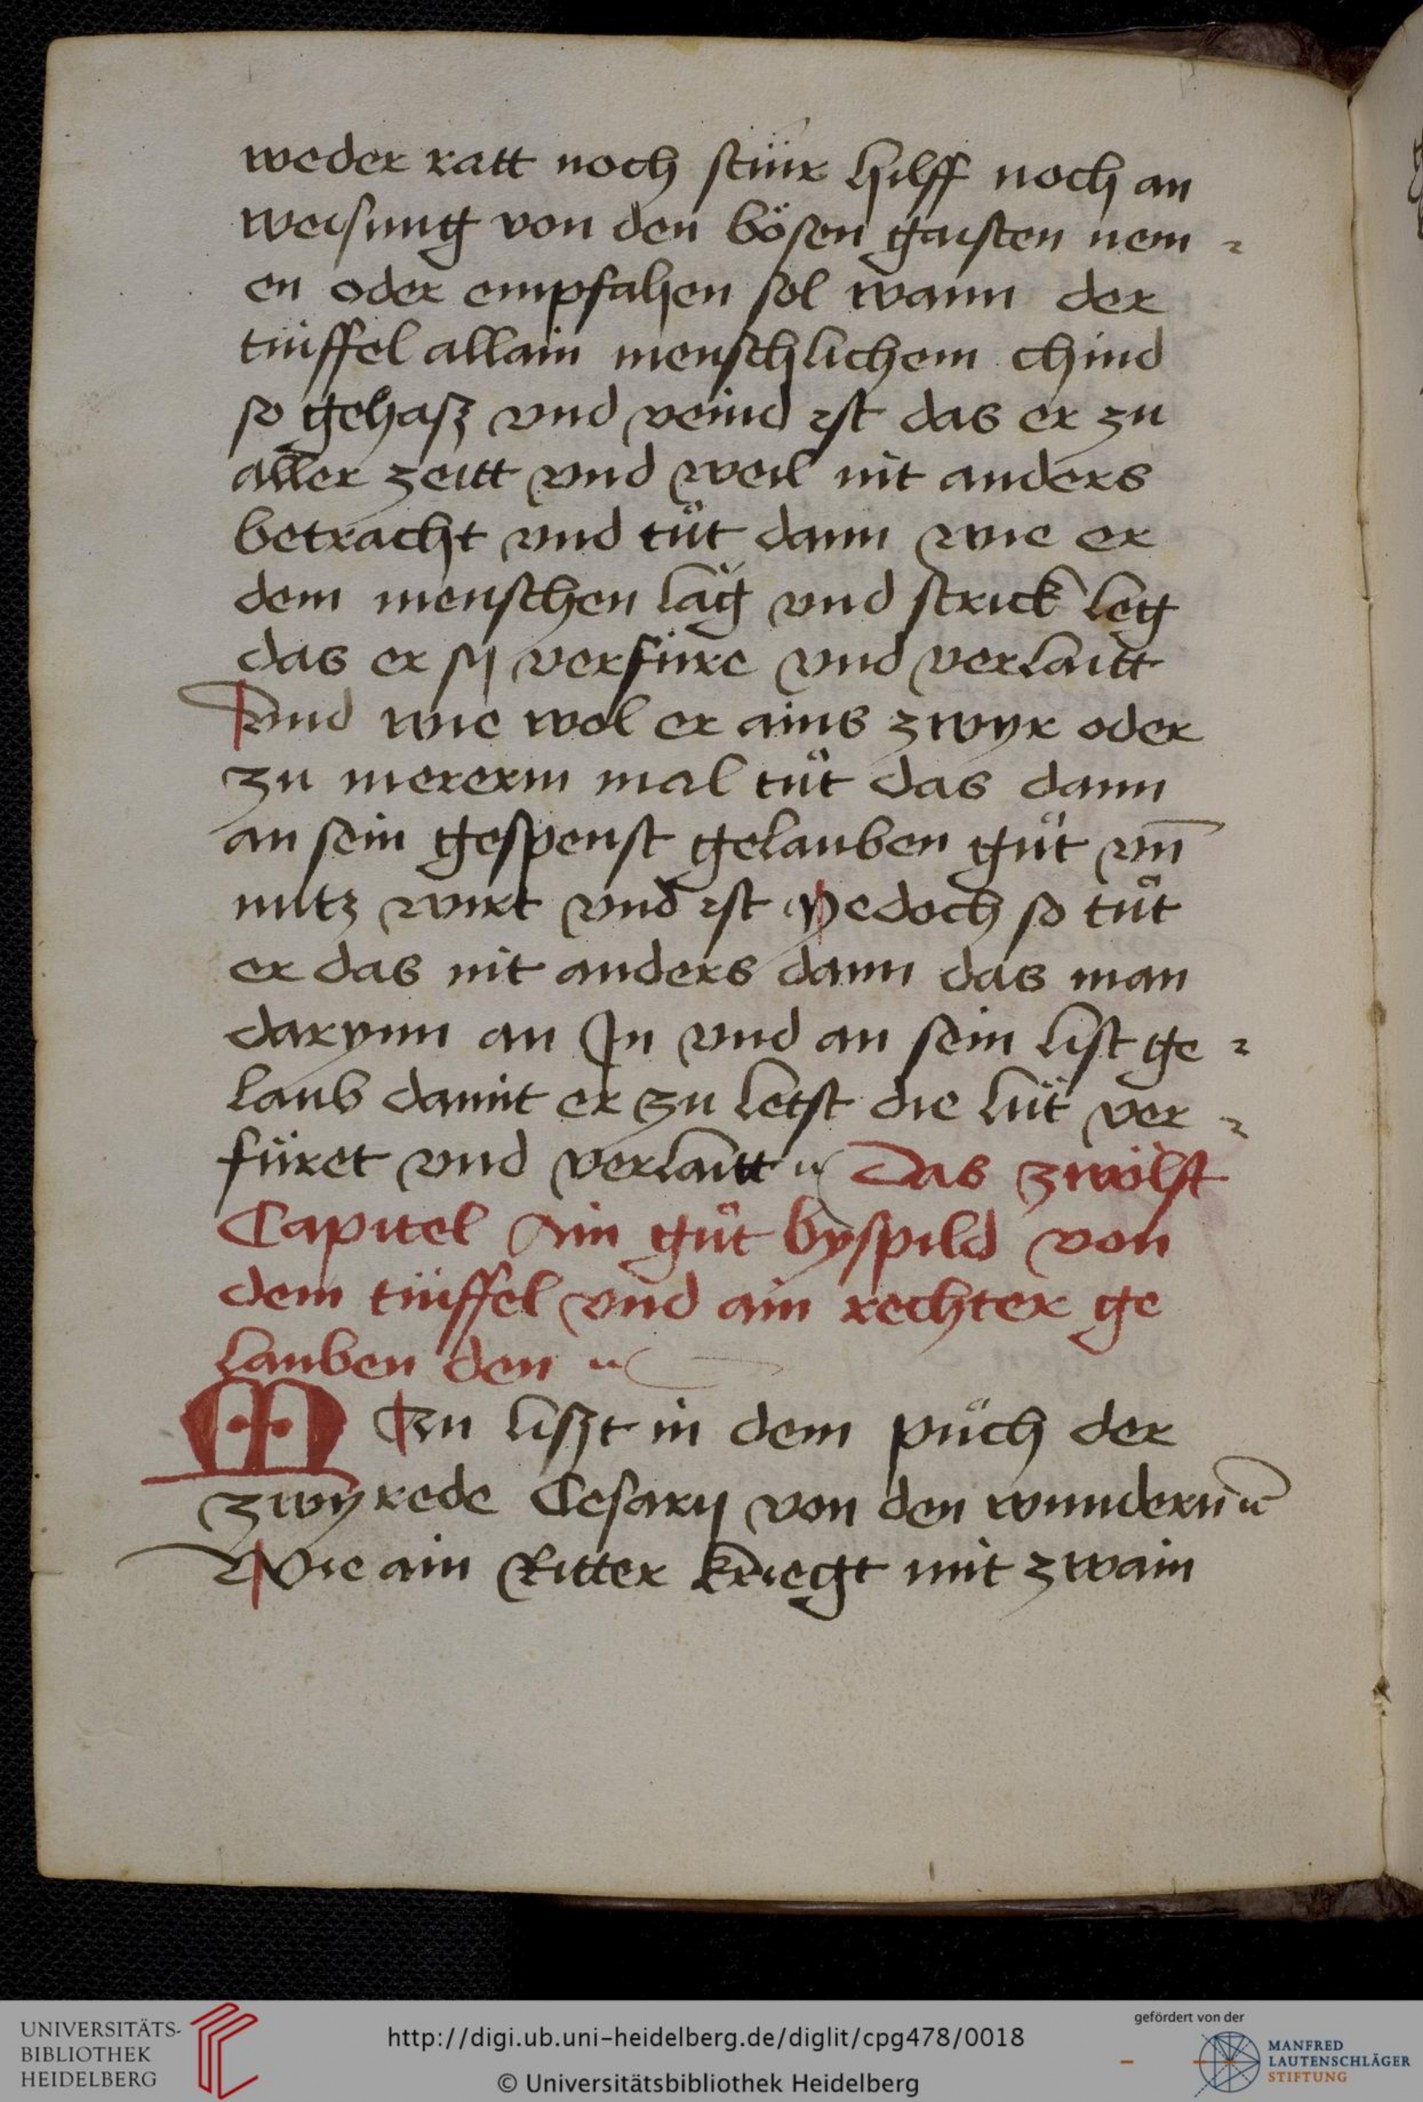 weder ratt noch stüir hilff noch an
weisung von den bösen gaisten nem-
en oder empfahen sol wann der
tüiffel allain menschlichem chind
so gehasz vnd veind ist das er zu
aller zeitt vnd weil nit anders
betracht vnd tůt dann wie er
dem menschen läg vnd strick leg
das er sy verfüre vnd verlaitt
Vnd wie wol er ains zwyr oder
zu mererm mal tůt das dann
an sein gespenst gelauben gůt vn̄
nutz wirt vnd ist Yedoch so tůt
er das nit anders dann das man
darynn an In vnd an sein list ge-
laub damit er zu letst die lüt ver-
füret vnd verlaitt Das zwölft
Capitel Ain gůt byspild von
dem tüiffel vnd ain rechter ge
lauben den
MAn liszt in dem půch der
zwyrede Cesarij von den wundern
Wie ain Ritter kriegt mit zwain
UNIVERSITÄTS-
BIBLIOTHEK
HEIDELBERG
http://digi.ub.uni-heidelberg.de/diglit/cpg478/0018
© Universitätsbibliothek Heidelberg
gefördert von der
MANFRED
LAUTENSCHLÄGER
STIFTUNG